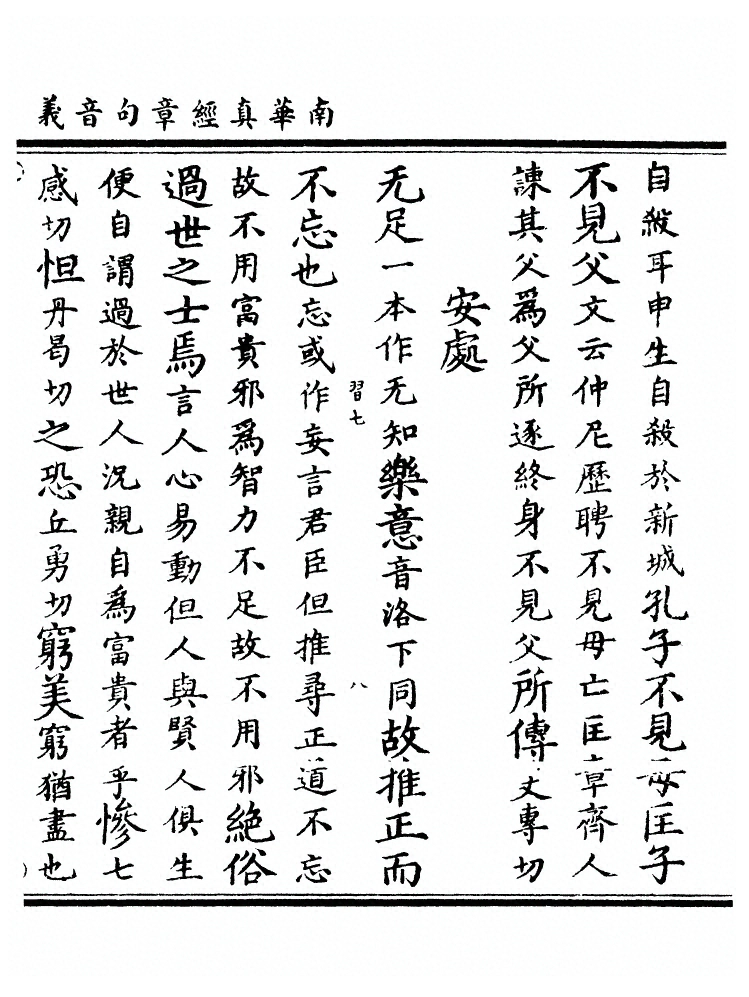 南華真經章句音義
自殺耳申生自殺於新城孔子不見母匡子
不見父文云仲尼歷聘不見母亡匡章齊人
諫其父爲父所逐終身不見父所傳丈專切
安處
无足一本作无知樂意音洛下同故推正而
習七
八
不忘也忘或作妄言君臣但推尋正道不忘
故不用富貴邪爲智力不足故不用邪絶俗
過世之士焉言人心易動但人與賢人俱生
便自謂過於世人況親自爲富貴者乎慘七
感切怛丹曷切之恐丘勇切窮美窮猶盡也